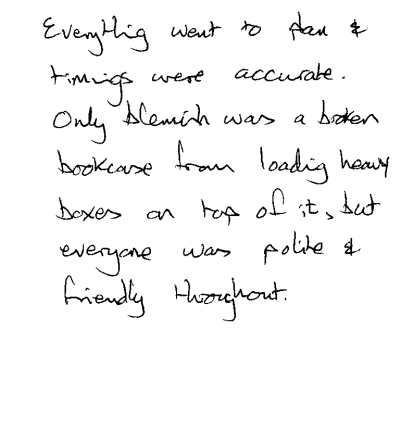 Everything went to plan &
timings were accurate.
Only blemish was a broken
bookcase from loading heavy
boxes on top of it, but
everyone was polite &
friendly throughout.